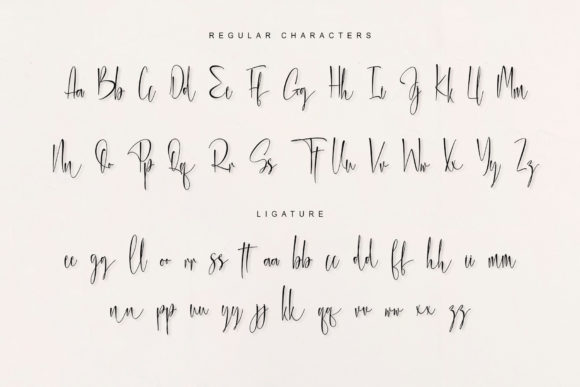 REGULAR CHARACTERS
Aa Bb Cc Dd Ee Ff Gg Hh Ii Jj Kk Ll Mm
Nn Oo Pp Qq Rr Ss Tt Uu Vv Ww Xx Yy Zz
LIGATURE
ee gg ll oo rr ss tt aa bb cc dd ff hh ii mm
nn pp uu yy jj kk qq vv ww xx zz